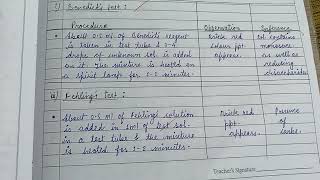 i) Benedict's Test :
Procedure Observation Inference
• About 0.5 ml of Benedict's reagent Brick red Sol. contains
is taken in test tube & 3-4 colour ppt. monosacc-
drops of unknown sol. is added appears. as well as
on it. The mixture is heated on reducing
a spirit lamp for 1-2 minutes. disaccharides
ii) Fehling's Test :
• About 0.5 ml of Fehling's solution Brick red Presence
is added in 5ml of test sol. ppt. of
in a test tube & the mixture appears.
is heated for 1-2 minutes.
Teacher's Signature